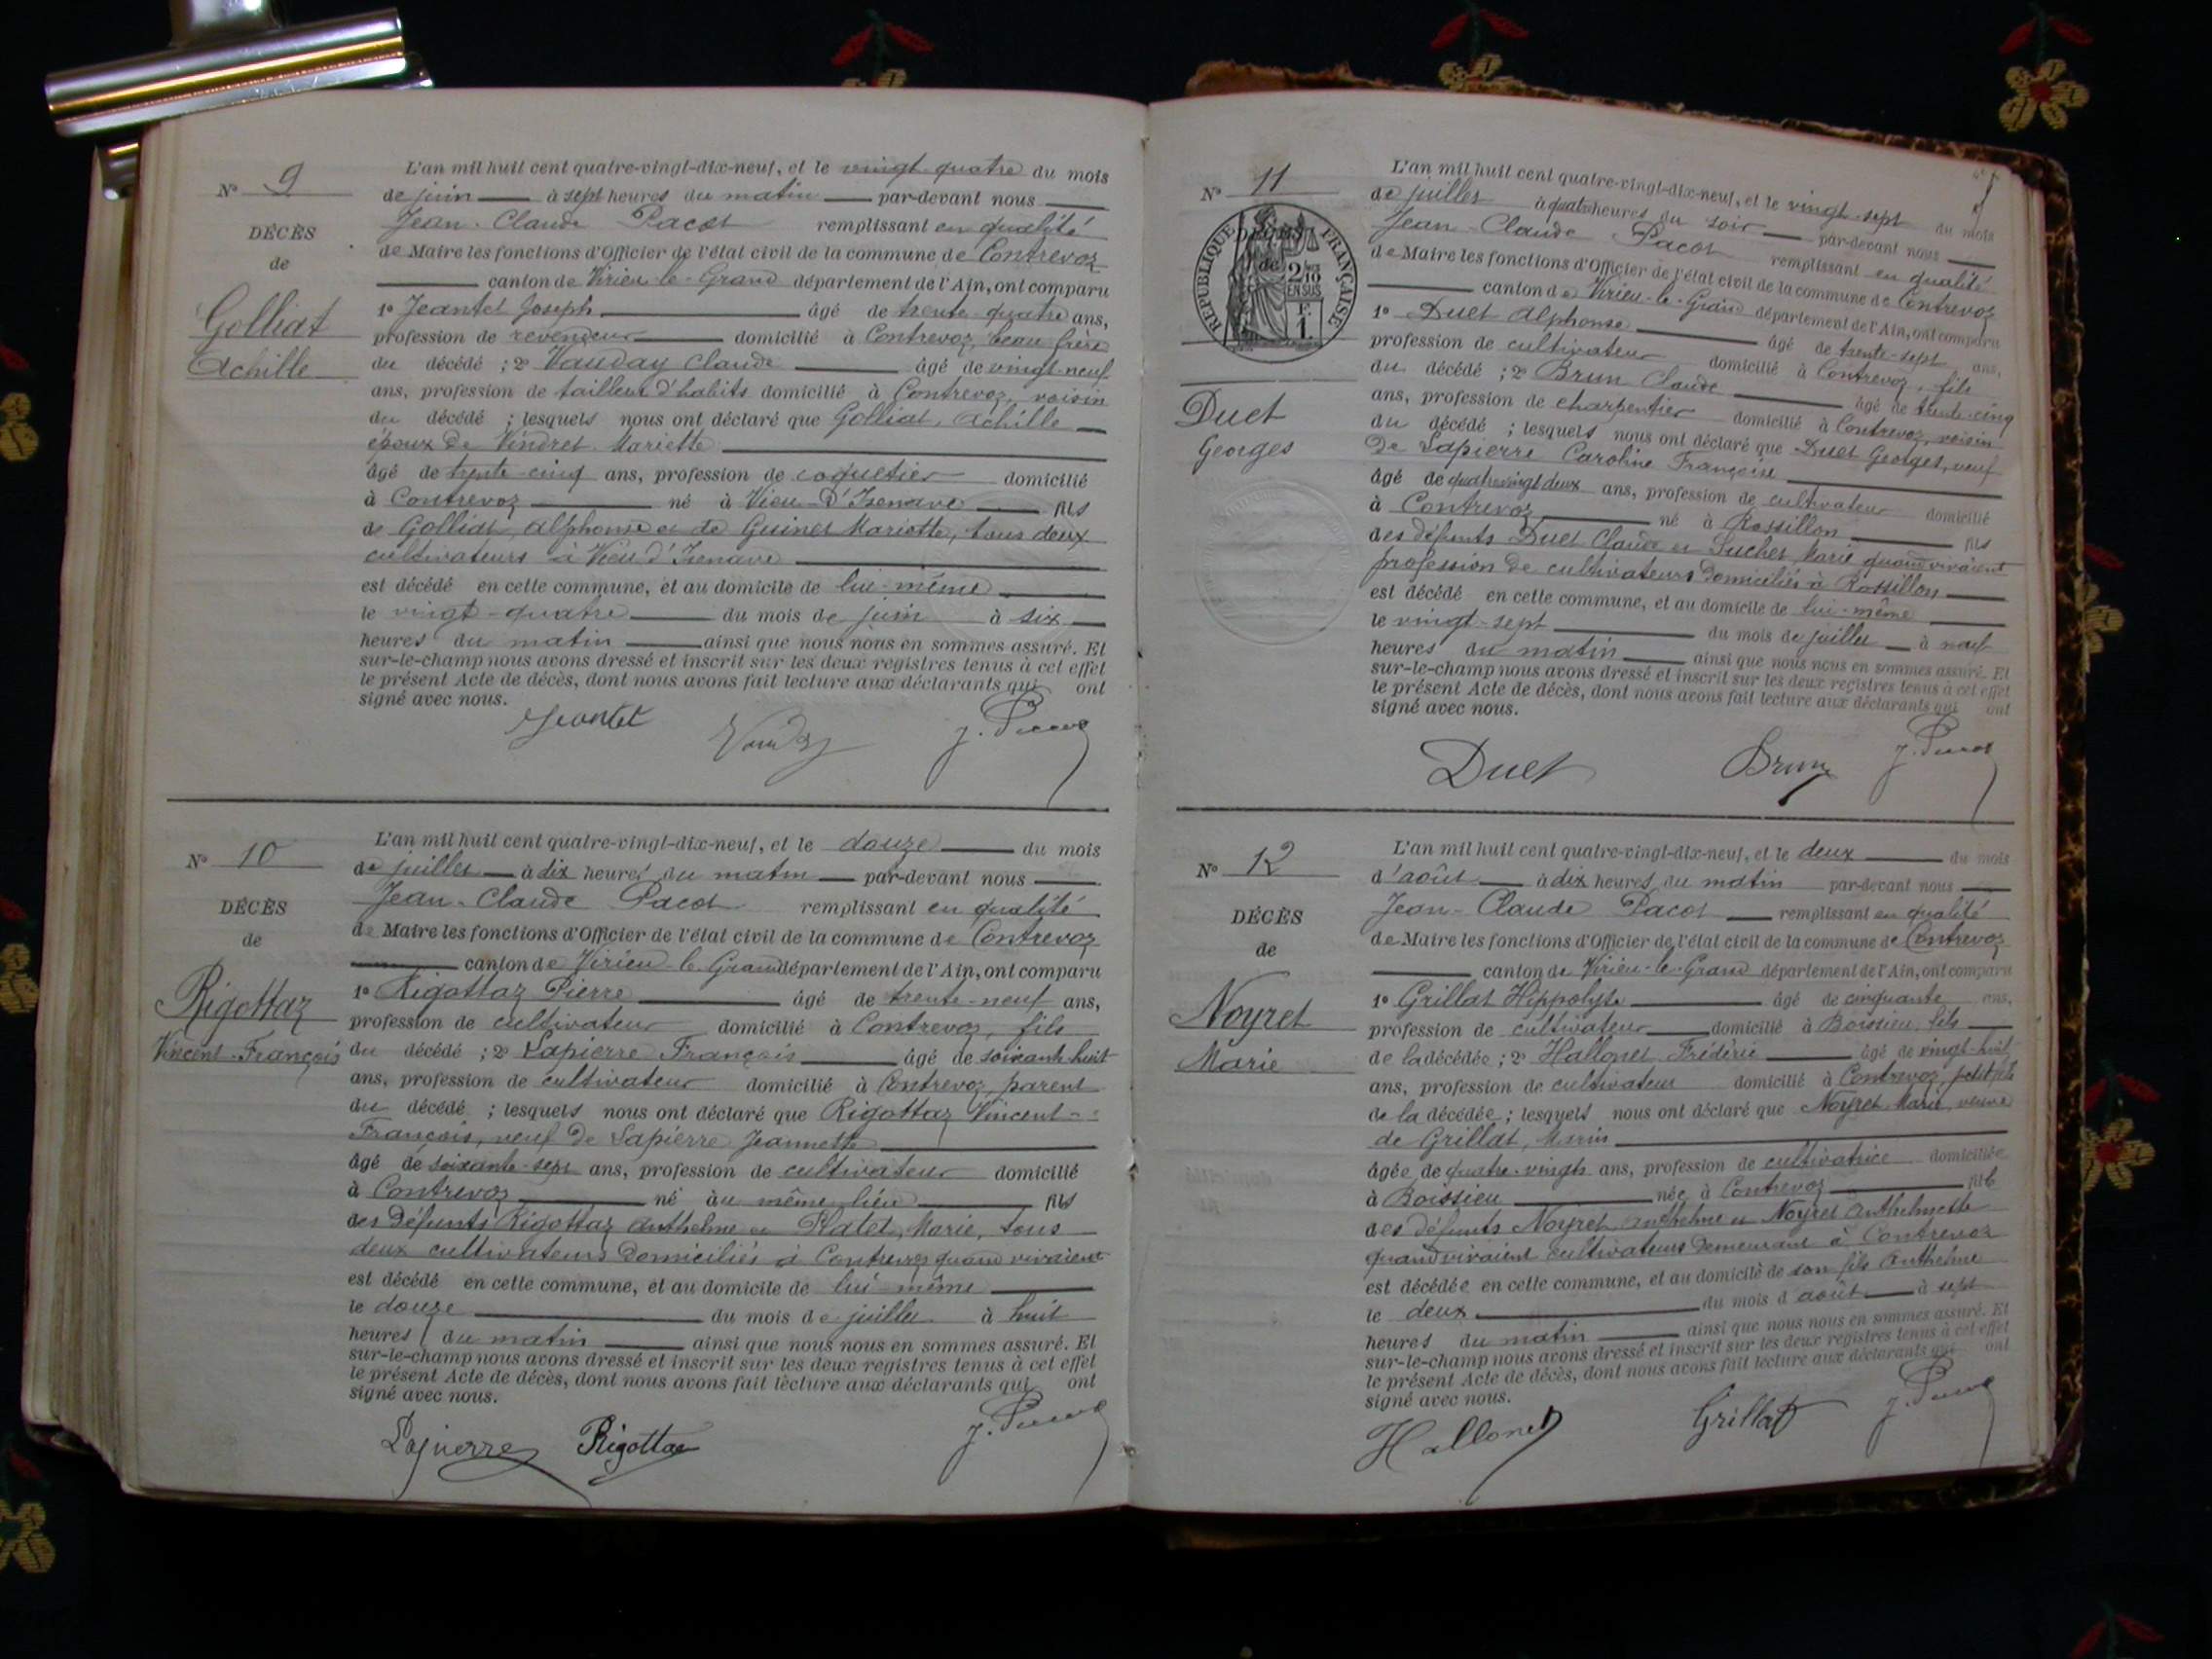 N° 9
DÉCÈS
de
Golliat
Achille
L'an mil huit cent quatre-vingt-dix-neuf, et le vingt quatre du mois
de juin à sept heures du matin par-devant nous
Jean-Claude Pacot remplissant en qualité
de Maire les fonctions d'Officier de l'état civil de la commune de Contrevoz
canton de Virieu-le-Grand département de l'Ain, ont comparu
1° Jeantet Joseph âgé de trente-quatre ans,
profession de revendeur domicilié à Contrevoz, beau frère
du décédé ; 2° Vauday Claude âgé de vingt-neuf
ans, profession de tailleur d'habits domicilié à Contrevoz, voisin
du décédé ; lesquels nous ont déclaré que Golliat, Achille
époux de Vindret Mariette
âgé de trente-cinq ans, profession de coquetier domicilié
à Contrevoz né à Vieu d'Izenave fils
de Golliat, Alphonse et de Guinet Mariette, tous deux
cultivateurs à Vieu d'Izenave
est décédé en cette commune, et au domicile de lui-même
le vingt-quatre du mois de juin à six
heures du matin ainsi que nous nous en sommes assuré. Et
sur-le-champ nous avons dressé et inscrit sur les deux registres tenus à cet effet
le présent Acte de décès, dont nous avons fait lecture aux déclarants qui ont
signé avec nous.
Jeantet Vauday J. Pacot
N° 10
DÉCÈS
de
Rigottaz
Vincent-François
L'an mil huit cent quatre-vingt-dix-neuf, et le douze du mois
de juillet à dix heures du matin par-devant nous
Jean-Claude Pacot remplissant en qualité
de Maire les fonctions d'Officier de l'état civil de la commune de Contrevoz
canton de Virieu-le-Grand département de l'Ain, ont comparu
1° Rigottaz Pierre âgé de trente-neuf ans,
profession de cultivateur domicilié à Contrevoz, fils
du décédé ; 2° Lapierre François âgé de soixante-huit
ans, profession de cultivateur domicilié à Contrevoz, parent
du décédé ; lesquels nous ont déclaré que Rigottaz Vincent-
François, veuf de Lapierre Jeannette
âgé de soixante-sept ans, profession de cultivateur domicilié
à Contrevoz né au même lieu fils
des défunts Rigottaz Anthelme et Platet, Marie, tous
deux cultivateurs domiciliés à Contrevoz quand vivaient
est décédé en cette commune, et au domicile de lui-même
le douze du mois de juillet à huit
heures du matin ainsi que nous nous en sommes assuré. Et
sur-le-champ nous avons dressé et inscrit sur les deux registres tenus à cet effet
le présent Acte de décès, dont nous avons fait lecture aux déclarants qui ont
signé avec nous.
Lapierre Rigottaz J. Pacot
N° 11
RÉPUBLIQUE FRANÇAISE
2/10
EN SUS
F.
1.
Duet
Georges
L'an mil huit cent quatre-vingt-dix-neuf, et le vingt-sept du mois
de juillet à quatre heures du soir par-devant nous
Jean-Claude Pacot remplissant en qualité
de Maire les fonctions d'Officier de l'état civil de la commune de Contrevoz
canton de Virieu-le-Grand département de l'Ain, ont comparu
1° Duet Alphonse âgé de trente-sept ans,
profession de cultivateur domicilié à Contrevoz, fils
du décédé ; 2° Brun Claude âgé de trente-cinq
ans, profession de charpentier domicilié à Contrevoz, voisin
du décédé ; lesquels nous ont déclaré que Duet Georges, veuf
de Lapierre Caroline Françoise
âgé de quatrevingt deux ans, profession de cultivateur domicilié
à Contrevoz né à Rossillon fils
des défunts Duet Claude et Suchet Marie quand vivaient
profession de cultivateurs domiciliés à Rossillon
est décédé en cette commune, et au domicile de lui-même
le vingt-sept du mois de juillet à neuf
heures du matin ainsi que nous nous en sommes assuré. Et
sur-le-champ nous avons dressé et inscrit sur les deux registres tenus à cet effet
le présent Acte de décès, dont nous avons fait lecture aux déclarants qui ont
signé avec nous.
Duet Brun J. Pacot
N° 12
DÉCÈS
de
Noyret
Marie
L'an mil huit cent quatre-vingt-dix-neuf, et le deux du mois
d'août à dix heures du matin par-devant nous
Jean-Claude Pacot remplissant en qualité
de Maire les fonctions d'Officier de l'état civil de la commune de Contrevoz
canton de Virieu-le-Grand département de l'Ain, ont comparu
1° Grillat Hippolyte âgé de cinquante ans,
profession de cultivateur domicilié à Boissieu, fils
de la décédée ; 2° Hallonet Frédéric âgé de vingt-huit
ans, profession de cultivateur domicilié à Contrevoz, petit fils
de la décédée ; lesquels nous ont déclaré que Noyret Marie, veuve
de Grillat, Marin
âgée de quatre-vingts ans, profession de cultivatrice domiciliée
à Boissieu née à Contrevoz fille
des défunts Noyret Anthelme et Noyret Anthelmette
quand vivaient cultivateurs demeurant à Contrevoz
est décédée en cette commune, et au domicile de son fils Anthelme
le deux du mois d'août à sept
heures du matin ainsi que nous nous en sommes assuré. Et
sur-le-champ nous avons dressé et inscrit sur les deux registres tenus à cet effet
le présent Acte de décès, dont nous avons fait lecture aux déclarants qui ont
signé avec nous.
Hallonet Grillat J. Pacot